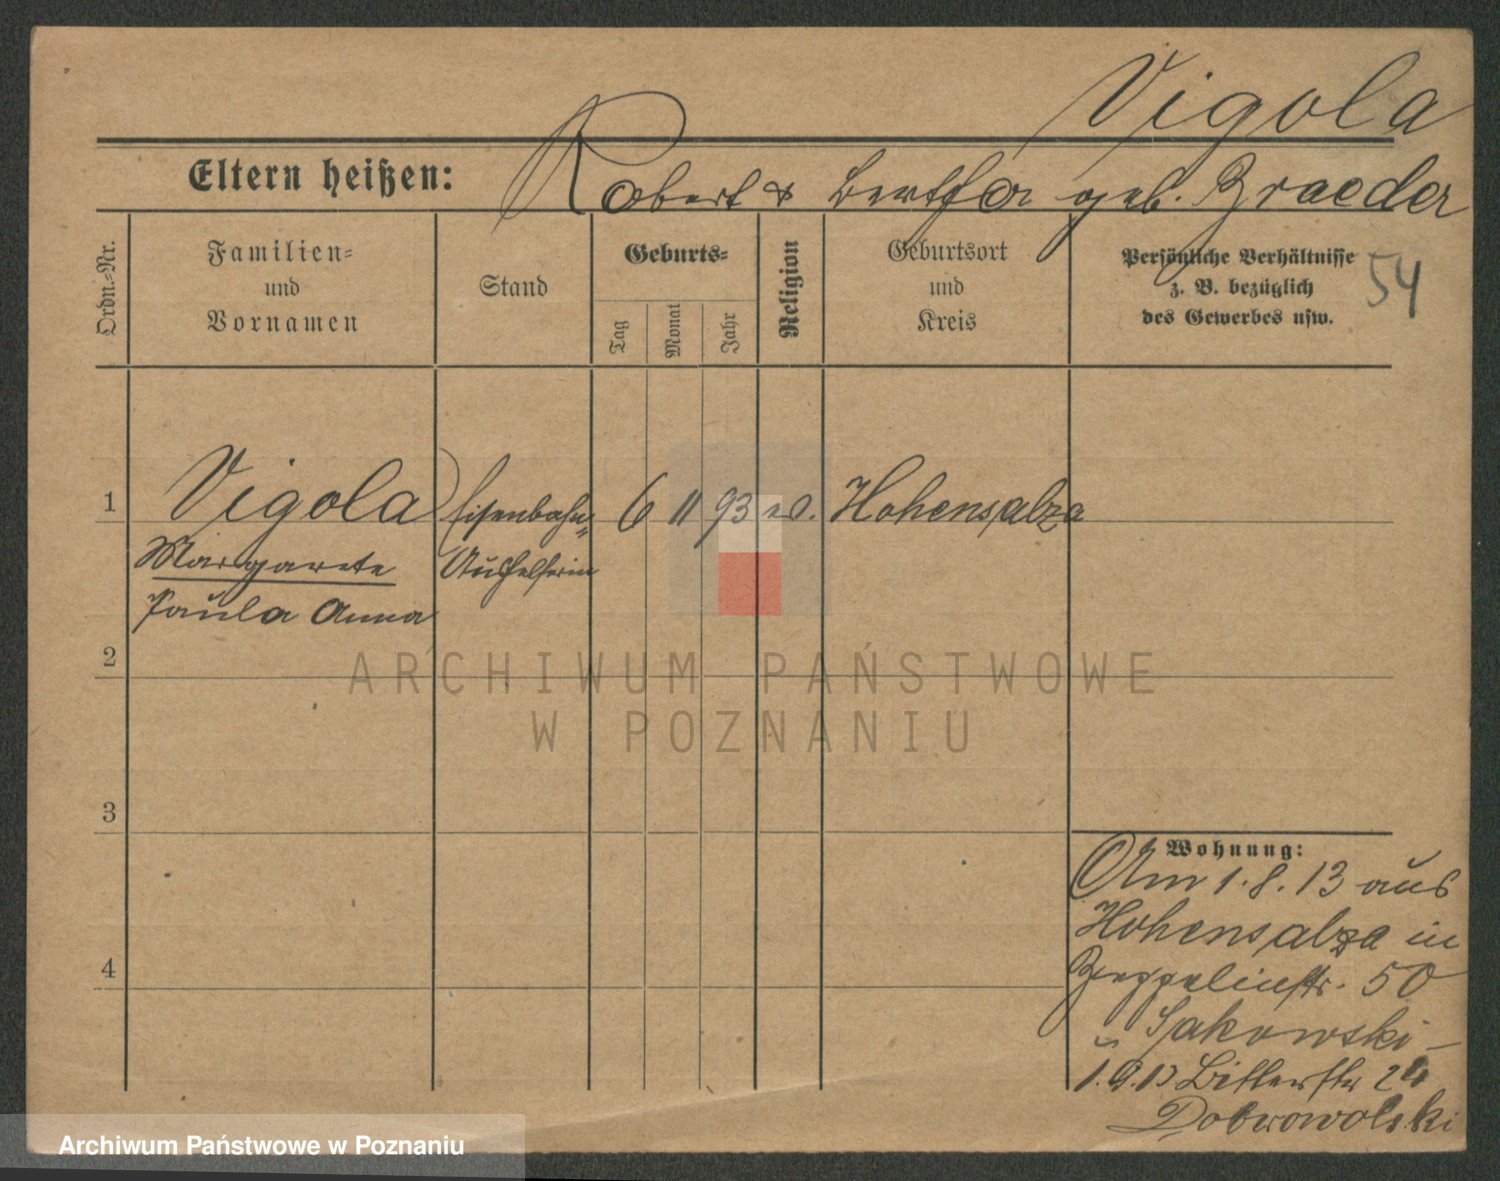 Vigola
Eltern heißen: Robert & Bertha geb. Braeder
54
Ordn.-Nr.
Familien-
und
Vornamen
Stand
Geburts-
Tag
Monat
Jahr
Religion
Geburtsort
und
Kreis
Persönliche Verhältnisse
z. B. bezüglich
des Gewerbes usw.
1 Vigola Eisenbahn- 6 11 93 ev. Hohensalza
Margarete Aushelferin
Paula Anna
2
3
4
Wohnung:
Am 1.8.13 aus
Hohensalza in
Zeppelinstr. 50
Sakowski
1.9.13 Bitterstr 24
Dobrowolski
ARCHIWUM PAŃSTWOWE
W POZNANIU
Archiwum Państwowe w Poznaniu